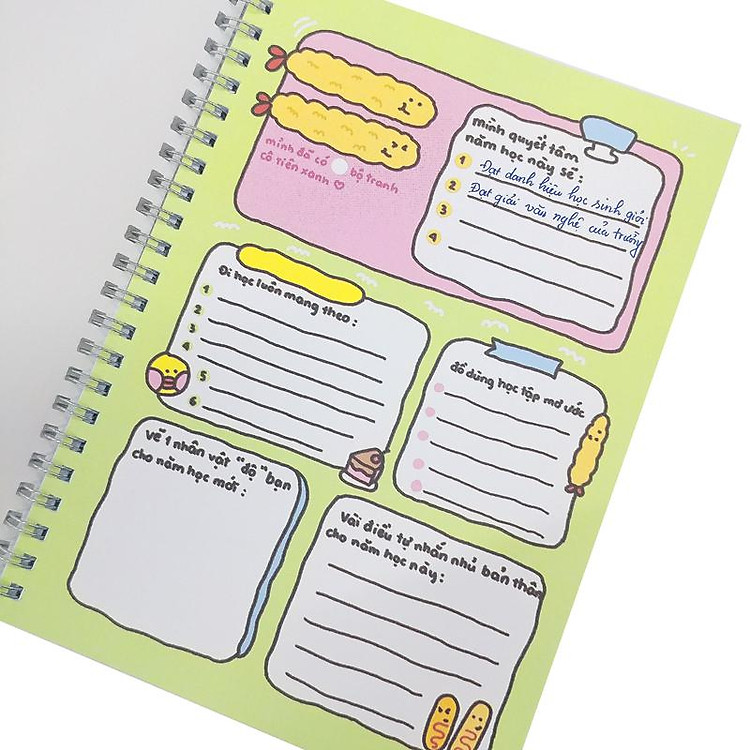 mình đã có bộ tranh
cô tiên xanh
mình quyết tâm
năm học này sẽ:
1 Đạt danh hiệu học sinh giỏi.
2 Đạt giải văn nghệ của trường
3
4
Đi học luôn mang theo:
1
2
3
4
5
6
đồ dùng học tập mơ ước
Vẽ 1 nhân vật "độ" bạn
cho năm học mới:
Vài điều tự nhắn nhủ bản thân
cho năm học này: